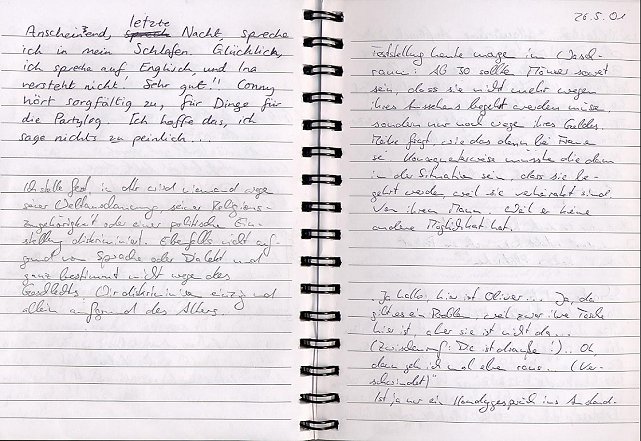 letzte
Anscheinend, Nacht, spreche
ich in mein Schlafen. Glücklich,
ich spreche auf Englisch, und Ina
versteht nicht! Sehr gut!! Conny
hört sorgfältig zu, für Dinge für
die Partylog Ich hoffe das, ich
sage nichts zu peinlich...
Ich stelle fest, in der wird niemand wegen
seiner Weltanschauung, seiner Religions-
zugehörigkeit oder einer politischen Ein-
stellung diskriminiert. Ebenfalls nicht auf-
grund von Sprache oder Dialekt und
ganz bestimmt nicht wegen des
Geschlechts Wir diskriminieren einzig und
allein aufgrund des Alters.
26.5.01
Feststellung heute morgen im Wasch-
raum: Ab 30 sollte Männer soweit
sein, dass sie nicht mehr wegen
ihres Aussehens begehrt werden müssen
sondern nur noch wegen ihres Geldes.
fragt, wie das dann bei Frauen
sei Konsequenterweise müssten die dann
in der Situation sein, dass sie be-
gehrt werden, weil sie verheiratet sind.
Von ihrem Mann. Weil er keine
andere Möglichkeit hat.
"Ja hallo, hier ist Oliver... Ja, da
gibt es ein Problem, weil zwar ihre Tasche
hier ist, aber sie ist nicht da...
(Zwischenruf: Die ist draußen!).. Oh,
dann geh ich mal eben raus. (Ver-
schwindet)"
Ist ja nur ein Handygespräch ins Ausland.